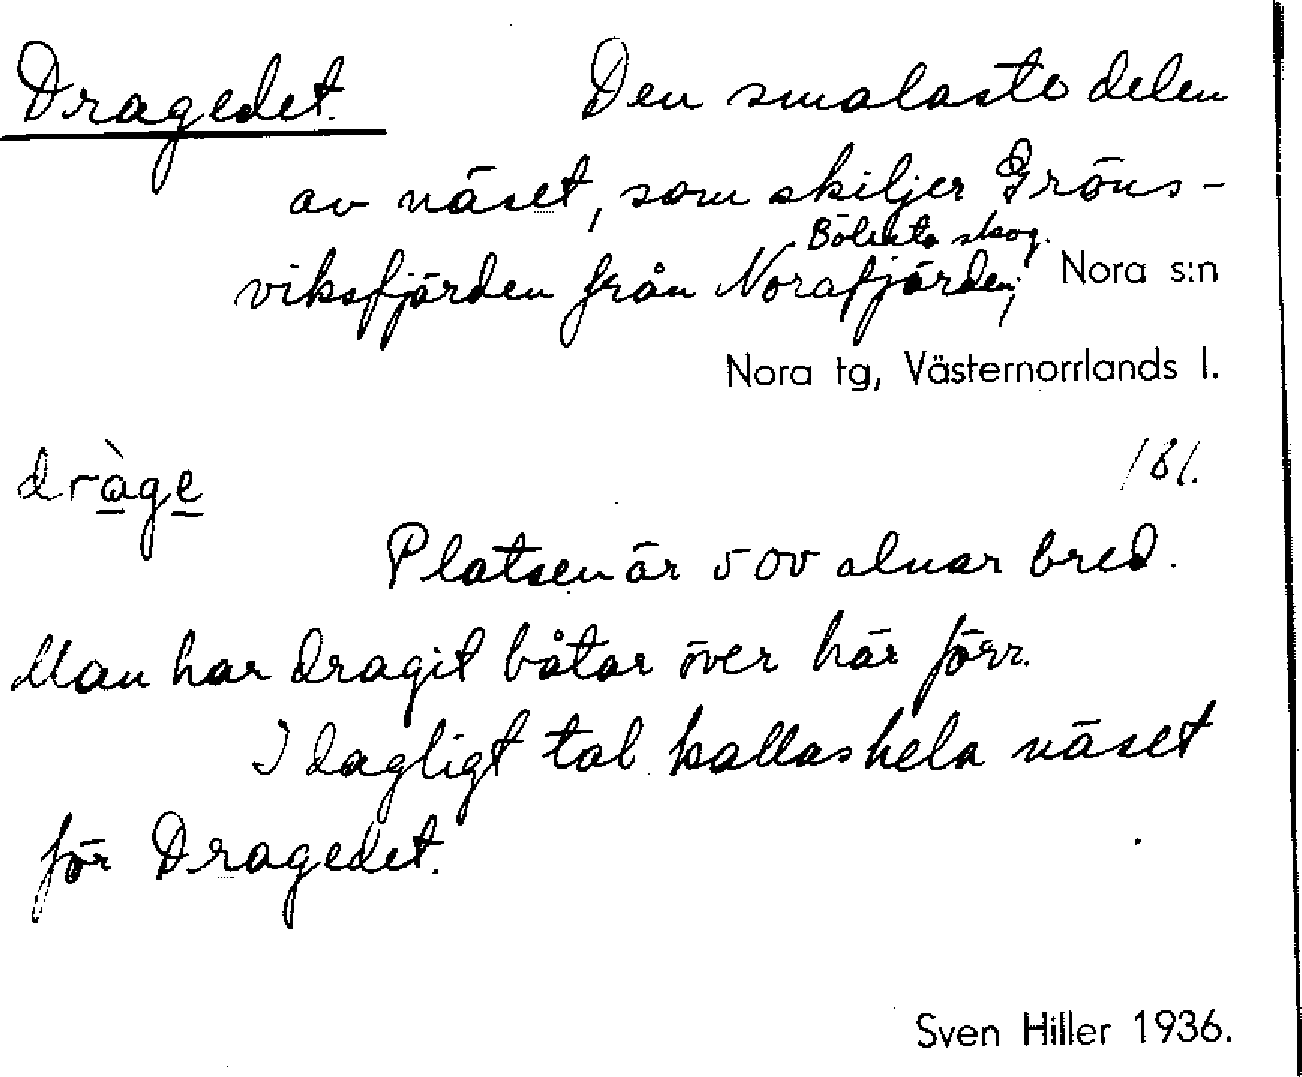 Dragedet. Den smalaste delen
av näset, som skiljer Gröns-
Böleste skog.
viksfjärden från Norafjärden; Nora s:n
Nora tg, Västernorrlands l.
dràge 161.
Platsen är 500 alnar bred.
Man har dragit båtar över här förr.
I dagligt tal kallas hela näset
för Dragedet.
Sven Hiller 1936.